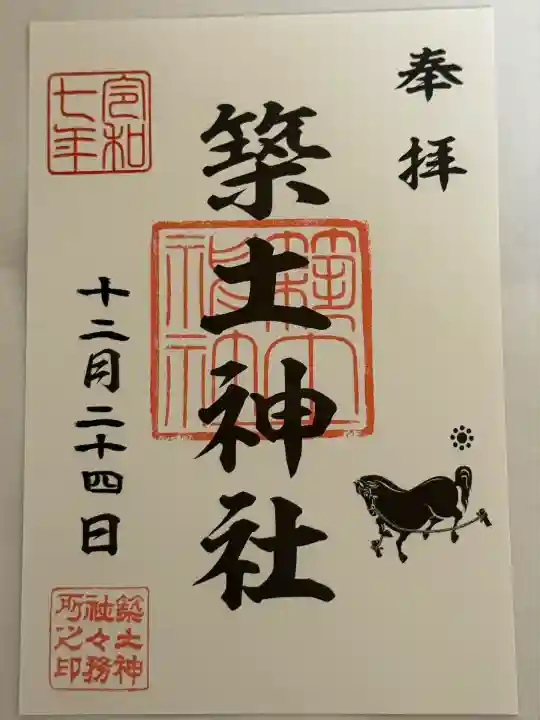 奉拝
築土神社
築土神社
令和七年
十二月二十四日
築土神社々務所之印